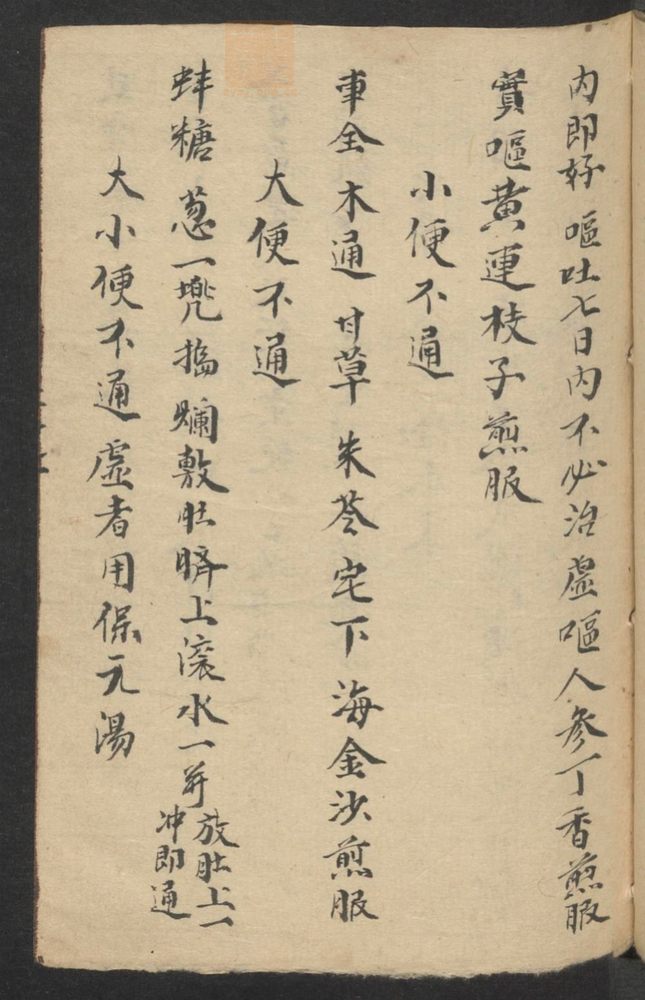 内即好 嘔吐七日内不必治 虛嘔人参丁香煎服
實嘔黄連枝子煎服
小便不通
車全木通甘草朱苓宅下海金沙煎服
大便不通
蚌糖葱一兠搗爛敷肚臍上滚水一并放肚上一冲即通
大小便不通虛者用保元湯